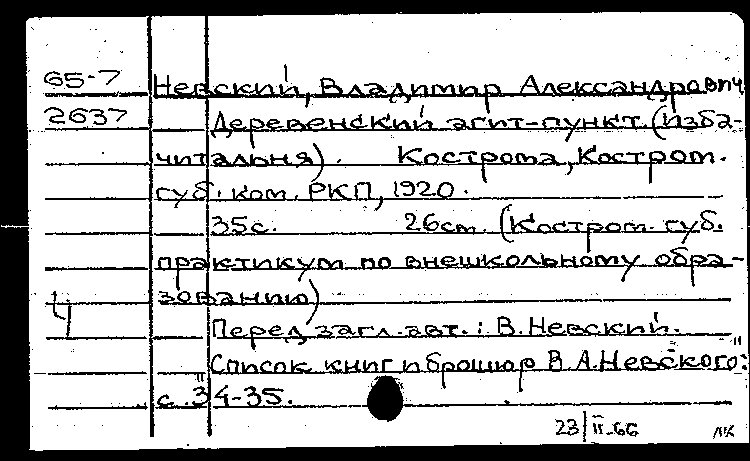 65-7 Невский, Владимир Александрович
2637 Деревенский агит-пункт (изба-
читальня). Кострома, Костром.
губ. ком. РКП, 1920.
35с. 26см. (Костром. губ.
практикум по внешкольному обра-
зованию)
Ч Перед загл. авт.: В. Невский.
"Список книг и брошюр В.А. Невского":
с. 34-35.
23/II-66